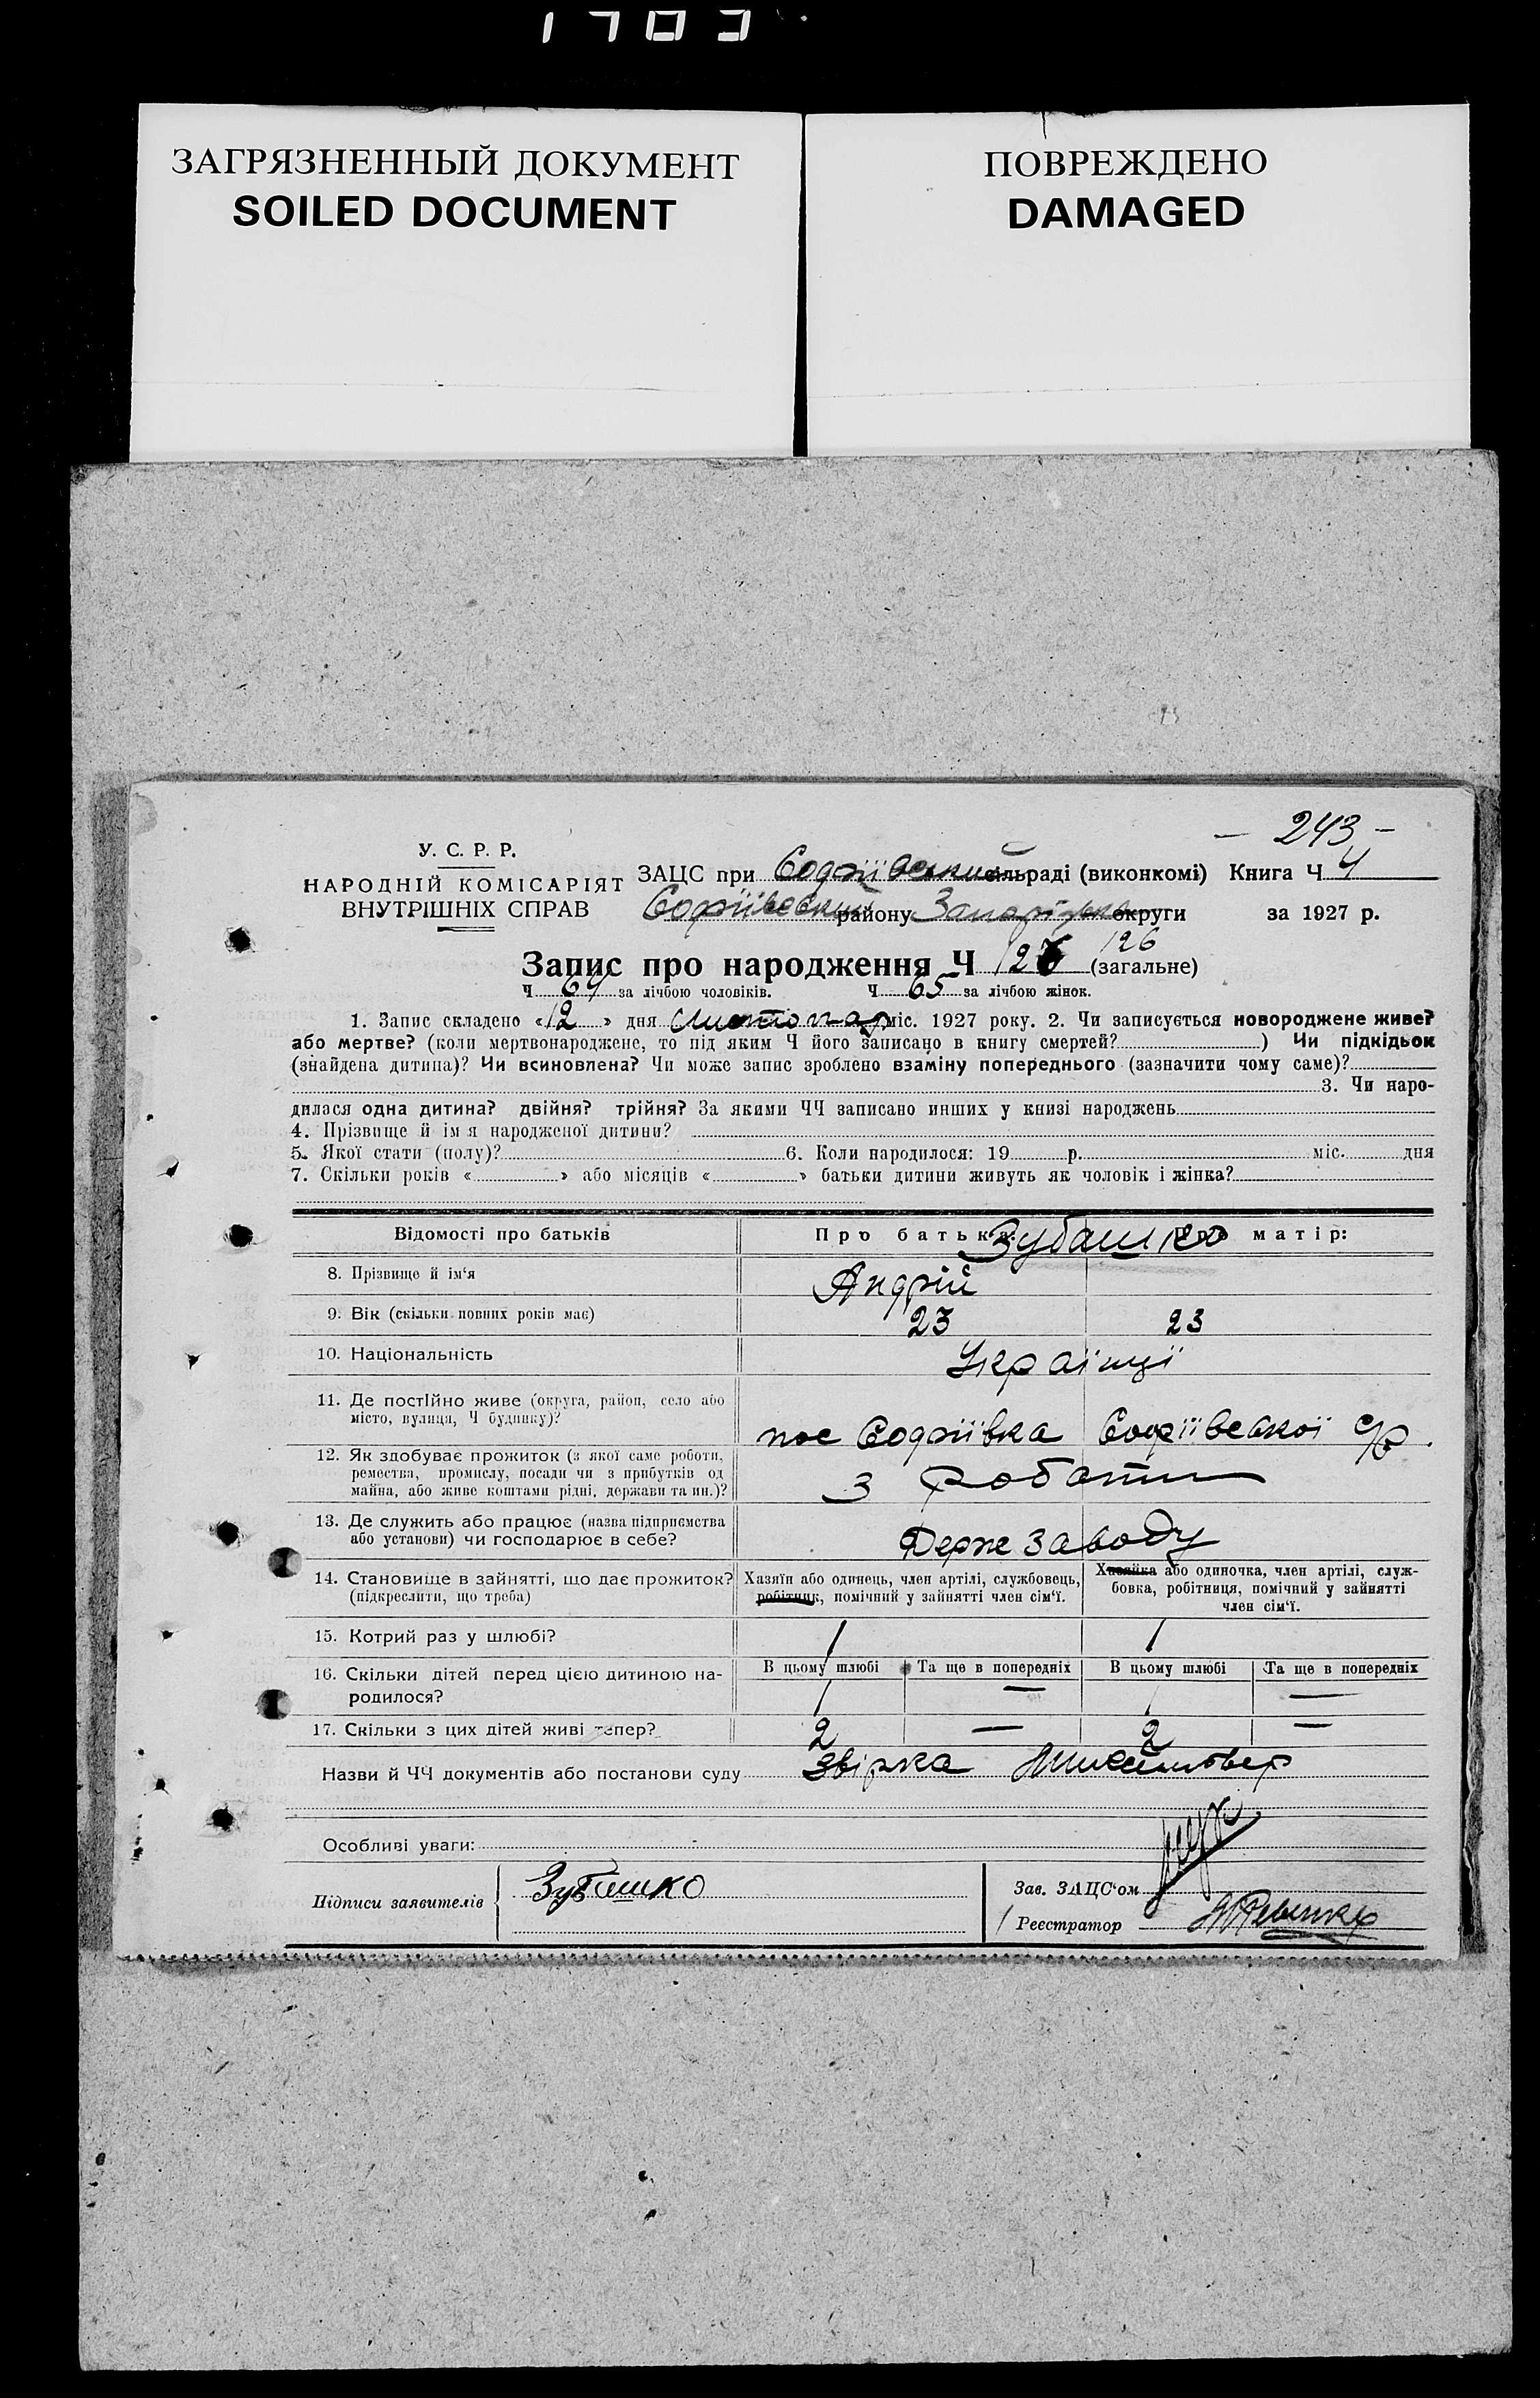 1703
ЗАГРЯЗНЕННЫЙ ДОКУМЕНТ
SOILED DOCUMENT
ПОВРЕЖДЕНО
DAMAGED
— 243 —
У. С. Р. Р.
НАРОДНІЙ КОМІСАРІЯТ
ВНУТРІШНІХ СПРАВ
ЗАЦС при Софіївський сільраді (виконкомі) Книга Ч 4
Софіївськ району Запоріжск округи за 1927 р.
126
Запис про народження Ч 126 (загальне)
Ч 64 за лічбою чоловіків. Ч 65 за лічбою жінок.
1. Запис складено «12» дня Листопад міс. 1927 року. 2. Чи записується новороджене живе?
або мертве? (коли мертвонароджене, то під яким Ч його записано в книгу смертей? ) Чи підкідьок
(знайдена дитина)? Чи всиновлена? Чи може запис зроблено взаміну попереднього (зазначити чому саме)?
3. Чи наро-
дилася одна дитина? двійня? трійня? За якими ЧЧ записано инших у книзі народжень
4. Прізвище й ім я народженої дитини?
5. Якої стати (полу)? 6. Коли народилося: 19 р. міс. дня
7. Скільки років « » або місяців « » батьки дитини живуть як чоловік і жінка?
Відомості про батьків
Про батька: Зубашко Про матір:
8. Прізвище й ім‘я
Андрій
9. Вік (скільки повних років має)
23 23
10. Національність
Українці
11. Де постійно живе (округа, район, село або
місто, вулиця, Ч будинку)?
пос Софіївка Софіївської с/р.
12. Як здобуває прожиток (з якої саме роботи,
ремества, промислу, посади чи з прибутків од
майна, або живе коштами рідні, держави та ин.)?
з роботи
13. Де служить або працює (назва підприємства
або установи) чи господарює в себе?
Держ заводу
14. Становище в зайнятті, що дає прожиток?
(підкреслити, що треба)
Хазяїн або одинець, член артілі, службовець,
робітник, помічний у зайнятті член сім‘ї.
Хазяйка або одиночка, член артілі, служ-
бовка, робітниця, помічний у зайнятті
член сім‘ї.
15. Котрий раз у шлюбі?
1 1
16. Скільки дітей перед цією дитиною на-
родилося?
В цьому шлюбі Та ще в попередніх В цьому шлюбі Та ще в попередніх
1 — 1 —
17. Скільки з цих дітей живі тепер?
2 — 2 —
Назви й ЧЧ документів або постанови суду звірка
Особливі уваги:
Підписи заявителів
Зубашко
Зав. ЗАЦС‘ом
Реєстратор